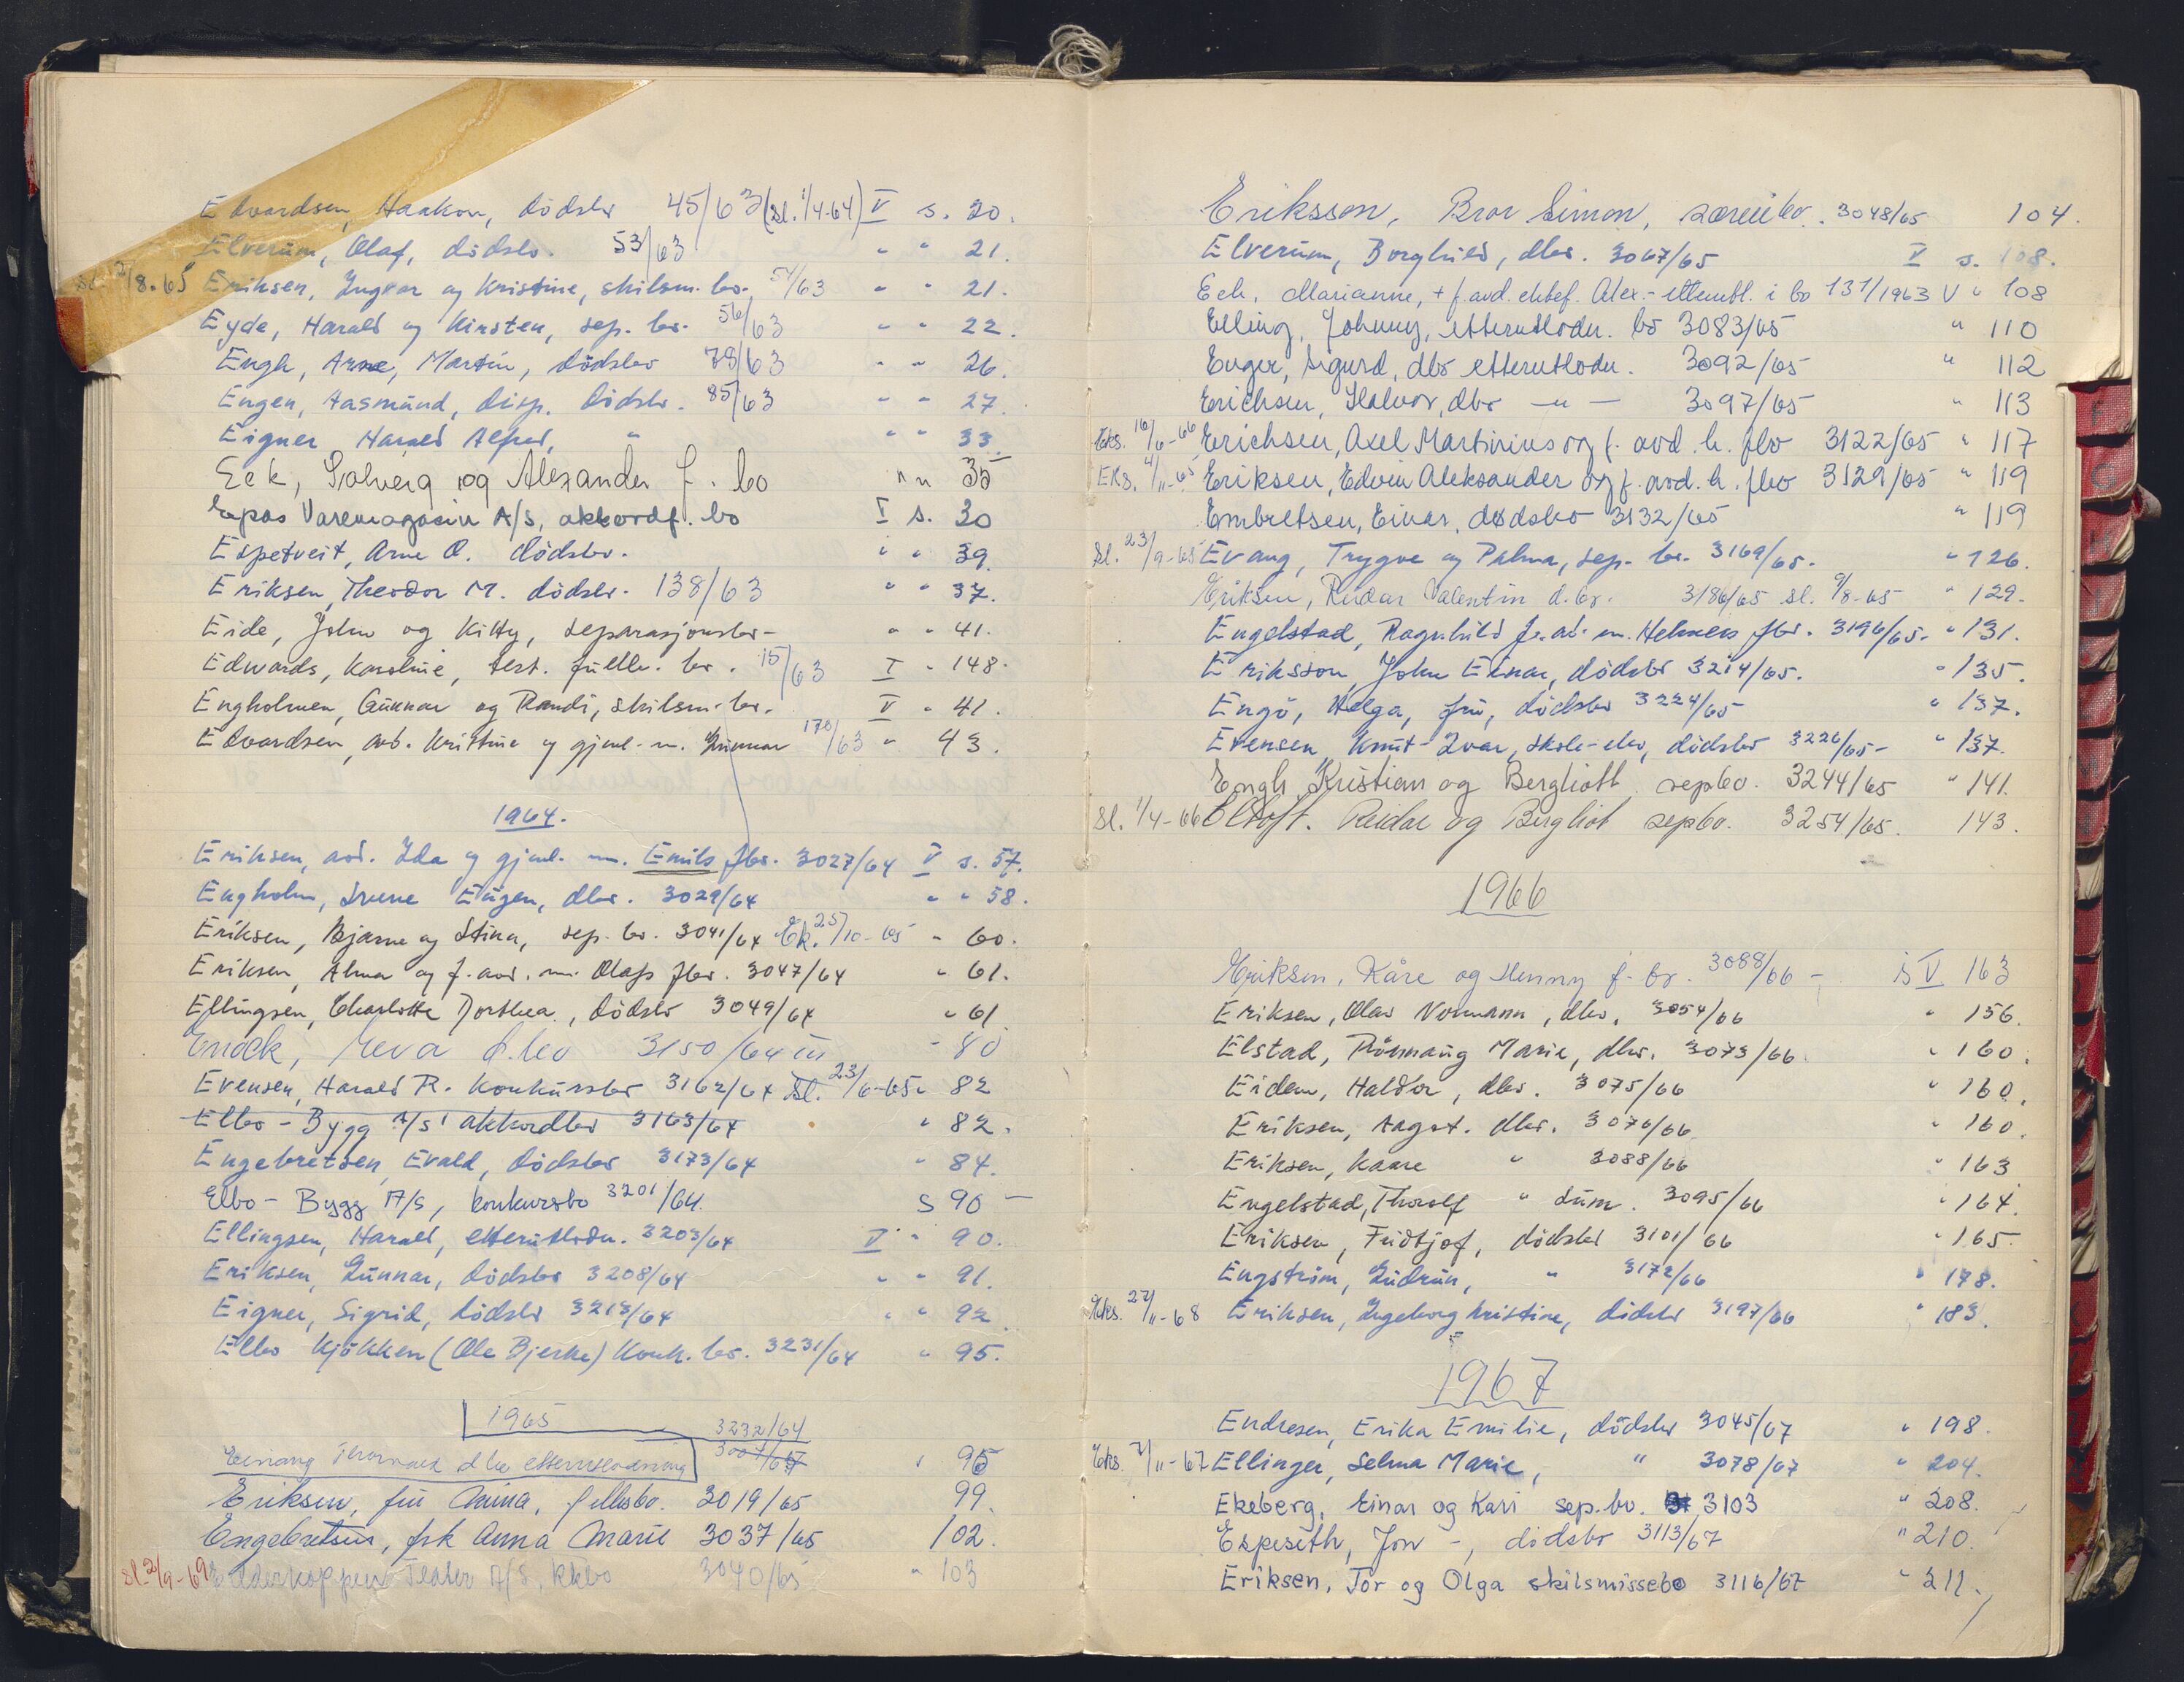 Edvardsen, Haakon, dødsbo 45/63 (sl. 1/4-64) V s. 20.
Elverum, Olaf, dødsbo. 53/63 " " 21.
sl. 12/8.65 Eriksen, Ingvar og Kristine, skilsm. bo. 54/63 " " 21.
Eyde, Harald og Kirsten, sep. bo. 56/63 " " 22.
Engh, Arne, Martin, dödsbo 79/63 " " 26.
Engen, Aasmund, disp. dødsbo. 85/63 " " 27.
Eigner Harald Alfred, " " " 33
Eek, Solveig og Alexander f. bo " " 35
Epas Varemagasin A/S, akkordf. bo V s. 30
Espetveit, Arne O. dødsbo. " " 39.
Eriksen, Theodor M. dødsbo. 138/63 " " 37.
Eide, John og Kitty, separasjonsbo - " " 41.
Edwards, Karoline, test. fullb. bo. 15/63 I " 148.
Engholmen, Gunnar og Randi, skilsm. bo. V " 41.
Edvardsen, avd. Kristine og gjenl. m. Gunnar 170/63 " 43.
1964.
Eriksen, avd. Ida og gjenl. m. Emils fbo. 3027/64 V s. 57.
Engholm, Sverre Eugen, dbo. 3029/64 " " 58.
Eriksen, Bjarne og Stina, sep. bo. 3041/64 Ek. 25/10-65 " 60.
Eriksen, Alma og f. avd. m. Olafs fbo. 3047/64 " 61.
Ellingsen, Charlotte Dorthea, dødsbo 3049/64 " 61
Enock, Meva f. bo 3150/64 III " 80
Evensen, Harald R. konkursbo 3162/64 Sl. 23/6-65 " 82
Elbo-Bygg A/S' akkordbo 3163/64 " 82.
Engebretsen, Evald, dødsbo 3173/64 " 84.
Elbo - Bygg A/S, konkursbo 3201/64. S 90 -
Ellingsen, Harald, etterutlodn. 3203/64 V " 90.
Eriksen, Gunnar, dødsbo 3208/64 " " 91.
Eigner, Sigrid, dødsbo 3213/64 " " 92.
Elbo Kjökken (Ole Bjerke) Konk. bo. 3231/64 " 95.
1965
3232/64
Einang Thorvald dbo etterutlodning 3007/64 " 95
Eriksen, fru Anina, fellesbo. 3019/65 99.
Engebretsen, frk Anna Marie 3037/65 102.
Sl. 2/9-69 Edderkoppen Teater A/S, kkbo 3040/65 " 103
Eriksson, Bror Simon, særeiebo. 3048/65 104.
Elverum, Borghild, dbo. 3067/65 V s. 108.
Eek, Marianne, + f. avd. ektef. Alex.- etterutl. i bo 131/1963 V " 108
Elling, Johnny, etterutlodn. bo 3083/65 " 110
Enger, Sigurd, dbo etterutlodn. 3092/65 " 112
Erichsen, Halvor, dbo -"- 3097/65 " 113
Eks. 16/6-66 Erichsen, Axel Martinius og f. avd. h. fbo 3122/65 " 117
Eks. 4/11-65 Eriksen, Edvin Aleksander og f. avd. h. fbo 3129/65 " 119
Embretsen, Einar, dødsbo 3132/65 " 119
Sl. 23/9-65 Evang, Trygve og Palma, sep. bo. 3169/65. " 126.
Eriksen, Reidar Valentin d. bo. 3186/65 sl. 9/8-65 " 129.
Engelstad, Ragnhild f. avd. m. Helmers fbo. 3196/65. " 131.
Eriksson, John Einar, dødsbo 3214/65. " 135.
Engö, Helga, fru, dödsbo 3224/65 " 137.
Evensen, Knut-Ivar, skole-elev, dödsbo 3226/65- " 137.
Engh, Kristian og Bergliott sepbo. 3244/65 " 141.
Sl. 1/4-66 Eltoft. Reidar og Bergliot sepbo. 3254/65. 143.
1966
Eriksen, Kåre og Henny f. bo. 3088/66 - is V 163
Eriksen, Olav Normann, dbo. 3054/66 " 156.
Elstad, Rönnaug Marie, dbo. 3073/66 " 160.
Eidem, Haldor, dbo. 3075/66 " 160.
Eriksen, Aagot. dbo. 3076/66 " 160.
Eriksen, Kaare " 3088/66 " 163
Engelstad, Thorolf " sum. 3095/66 " 164.
Eriksen, Fridtjof, dödsbo 3101/66 " 165.
Engström, Gudrun, " 3172/66 " 178.
Eks. 27/11-68 Eriksen, Ingeborg Kristine, dödsbo 3197/66 " 183.
1967
Endresen, Erika Emilie, dödsbo 3045/67 " 198.
Eks. 7/11-67 Ellinger, Selma Marie, " 3078/67 " 204.
Ekeberg, Einar og Kari sep.bo. 3103 " 208.
Espeseth, Jon -, dödsbo 3113/67 " 210.
Eriksen, Tor og Olga skilsmissebo 3116/67 " 211.